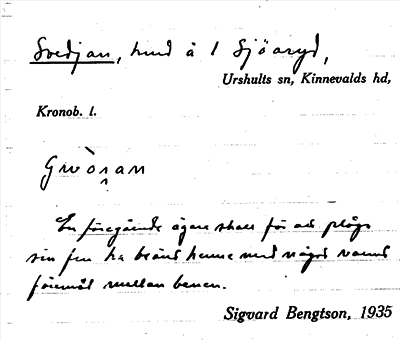 Svedjan, hmd å 1 Sjöaryd,
Urshults sn, Kinnevalds hd,
Kronob. l.
En föregående ägare skall för att plåga
sin fru ha bränt henne med något varmt
föremål mellan benen.
Sigvard Bengtson, 1935